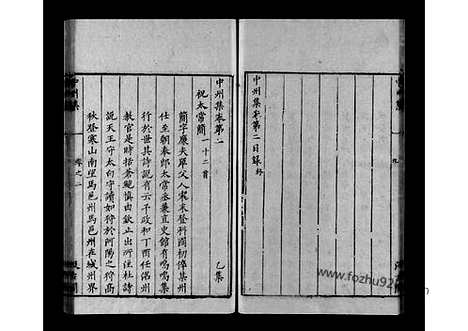 中州集卷第二目錄終
中州集卷第二
乙集
祝太常簡一十二首
簡字廉夫單父人宋末登科國初倅某州
仕至朝奉郎太常丞兼直史館有嗚嗚集
行於世其詩說有云千政和丁酉任洺州
教官是時括蒼鮑慎由欽止出所注杜詩
說天王守太白守讀如狩於河陽之狩高
秋登寒山南望馬邑州馬邑州在城州界
中州集
卷之二
www.fozhu920.com